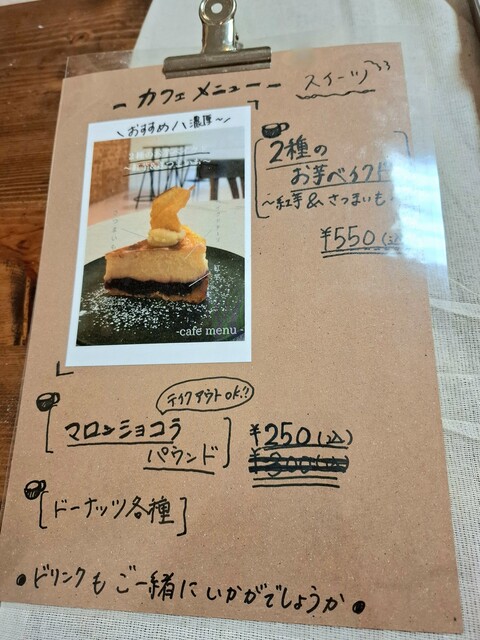 - カフェメニュー -
スイーツ
\ おすすめ / \ 濃厚~ /
2種の
お芋ベイクド
~紅芋 & さつまいも~
¥550(込)
-cafe menu-
テイクアウトOK!!
マロンショコラ
パウンド
¥250(込)
¥300(込)
ドーナッツ各種
• ドリンクも ご一緒に いかがでしょうか •